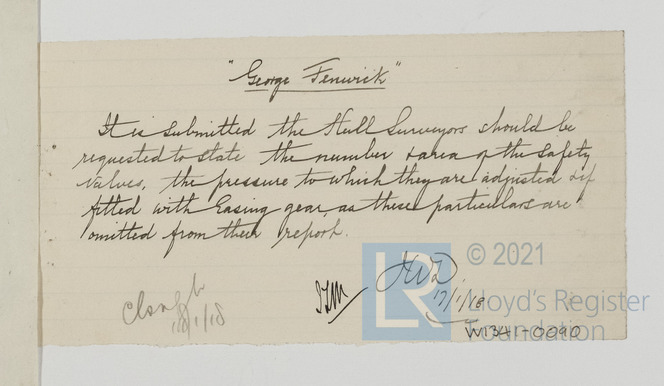 "George Fenwick"
It is submitted the Hull Surveyors should be
requested to state the number & area of the Safety
Valves, the pressure to which they are adjusted & if
fitted with Easing gear, as these particulars are
omitted from their report.
17/1/18
/1/18
© 2021
LR
Lloyd's Register
Foundation
W1341-0090